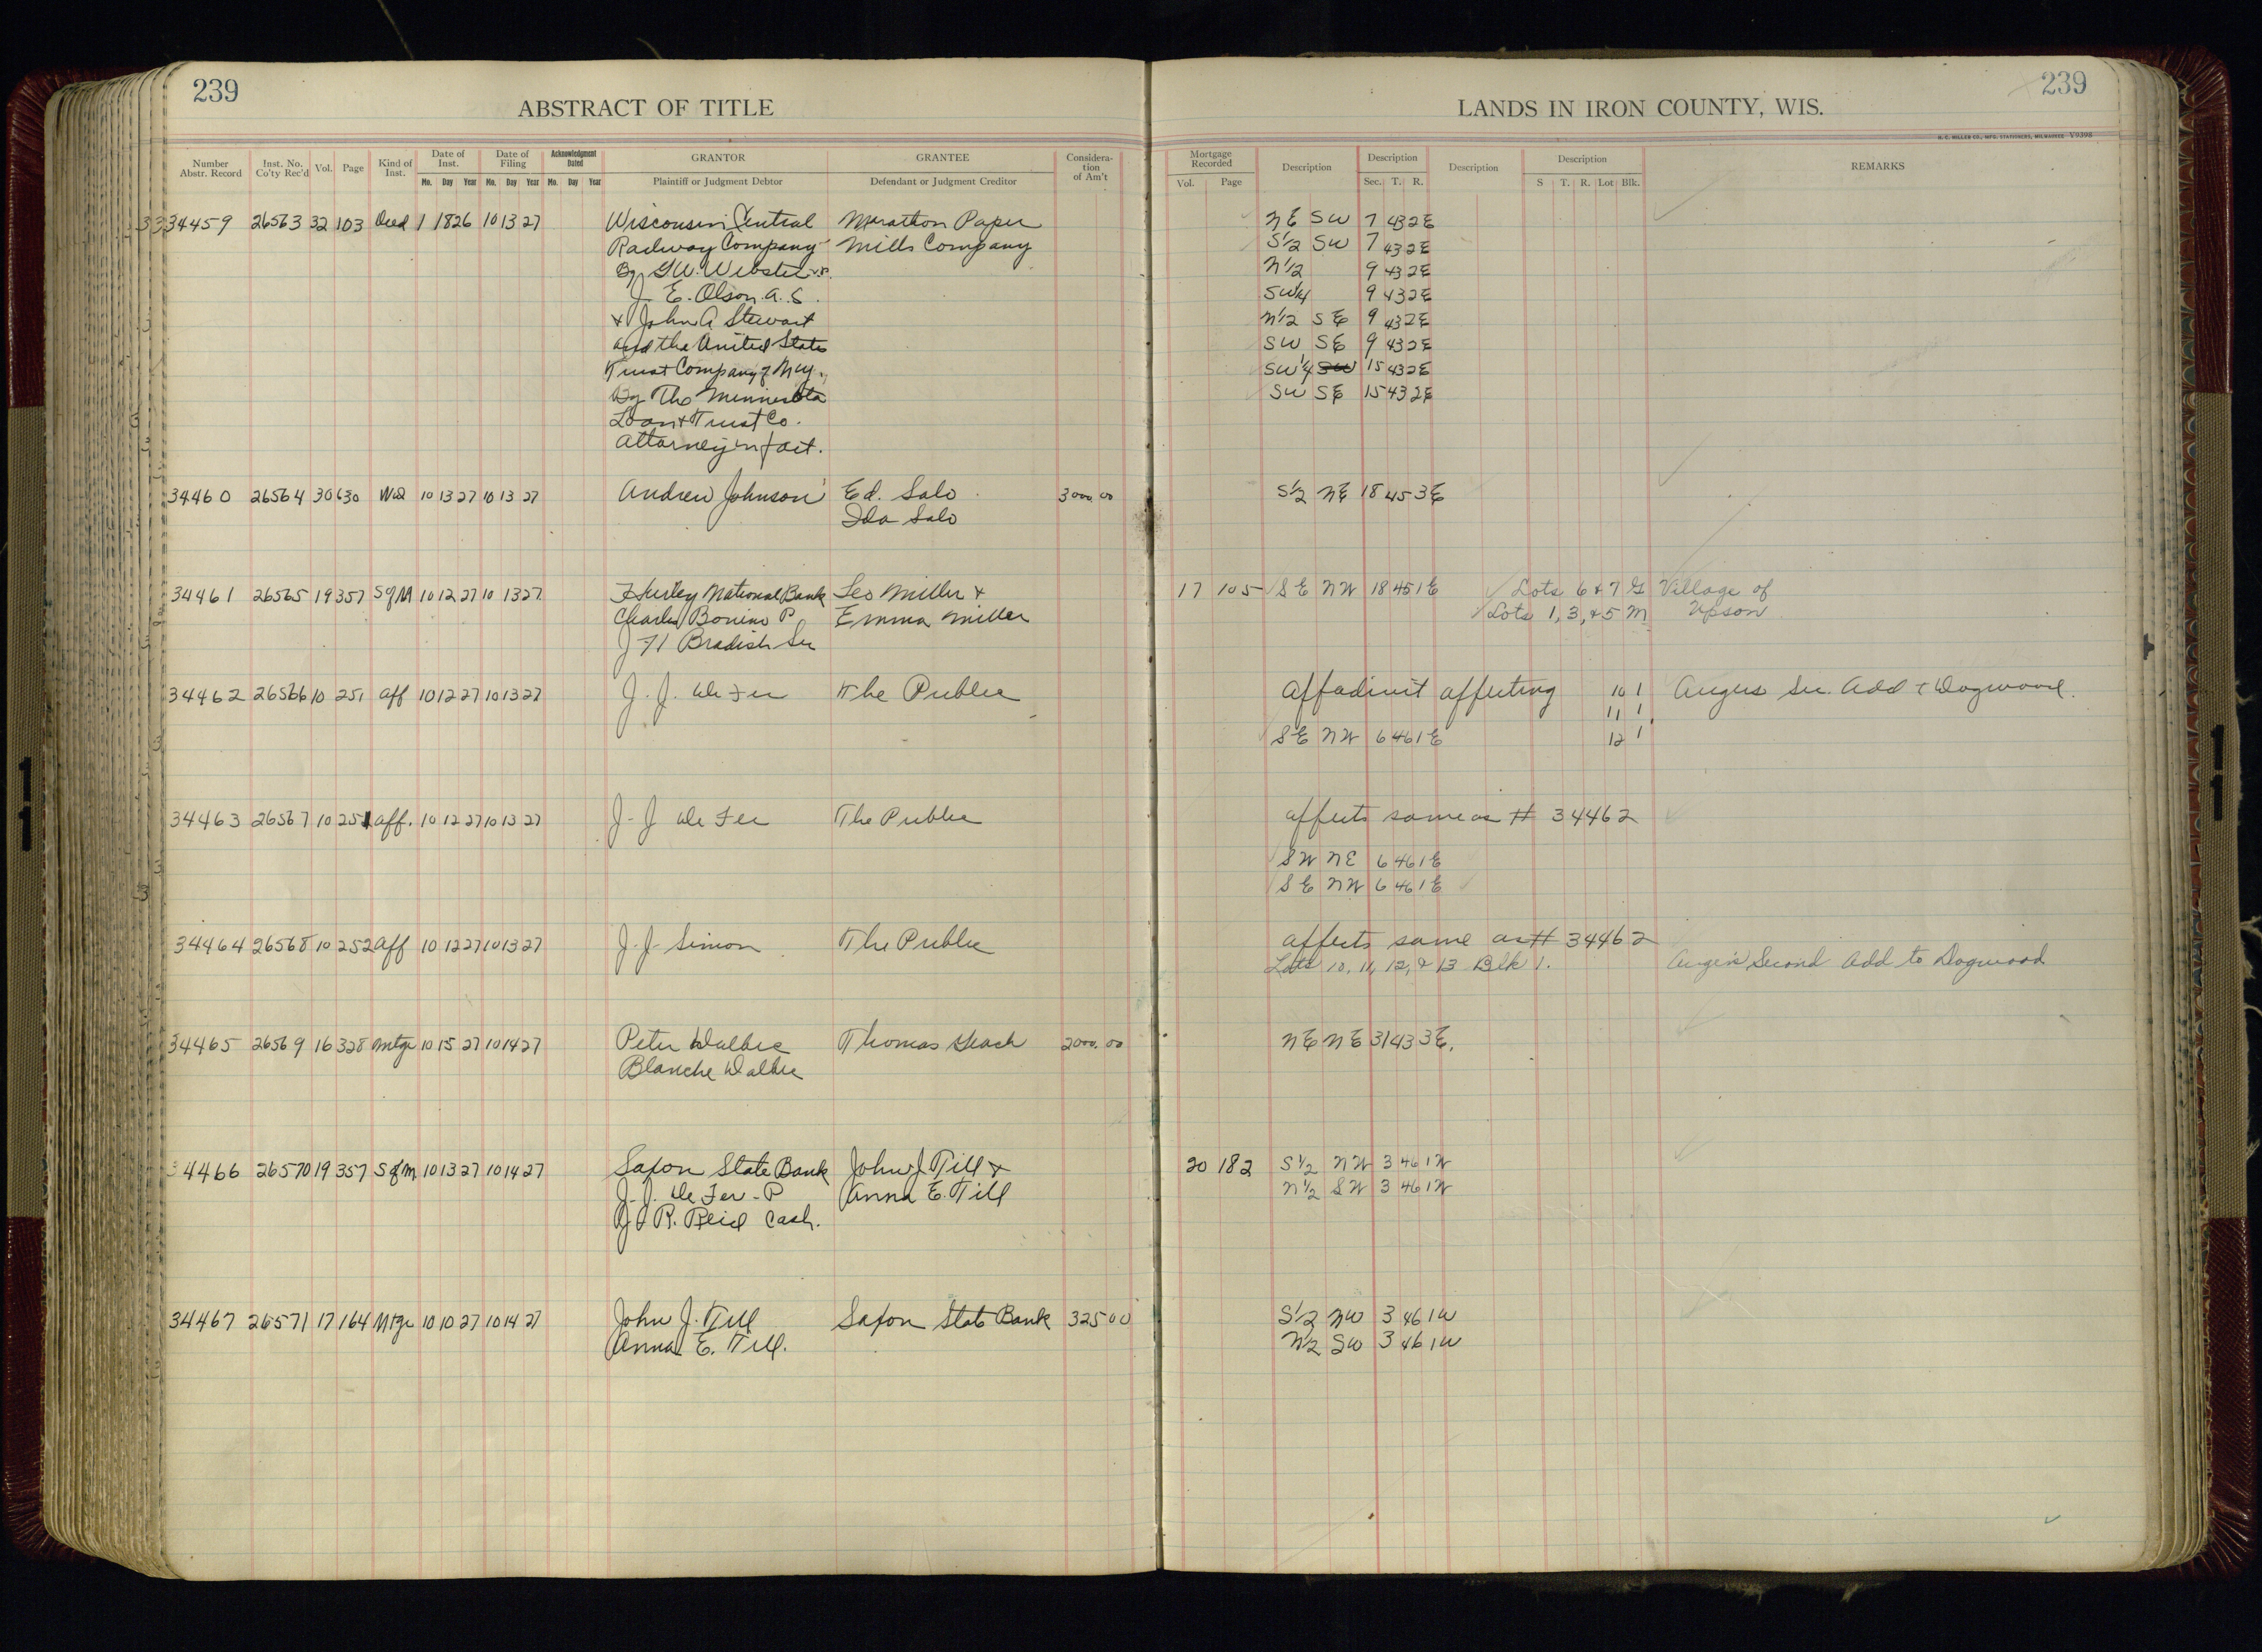 239
ABSTRACT OF TITLE
Number Abstr. Record Inst. No. Co'ty Rec'd Vol. Page Kind of Inst. Date of Inst. Mo. Day Year Date of Filing Mo. Day Year Acknowledgment Dated Mo. Day Year GRANTOR Plaintiff or Judgment Debtor GRANTEE Defendant or Judgment Creditor Considera-tion of Am't
239
LANDS IN IRON COUNTY, WIS.
H. C. MILLER CO., MFG. STATIONERS, MILWAUKEE V9398
Mortgage Recorded Vol. Page Description Description Sec. T. R. Description Description S T. R. Lot Blk. REMARKS
34459 26563 32 103 Deed 1 18 26 10 13 27 Wisconsin Central Marathon Paper NE SW 7 43 2E
Railway Company Mills Company S1/2 SW 7 43 2E
By G.W. Webster V.P. N1/2 9 43 2E
J. E. Olson A.S. SW1/4 9 43 2E
+ John A Stewart N1/2 SE 9 43 2E
and the United States SW SE 9 43 2E
Trust Company of N.Y. SW1/4 SW 15 43 2E
By The Minnesota SW SE 15 43 2E
Loan + Trust Co.
Attorney in fact.
34460 26564 30 630 Wd 10 13 27 10 13 27 Andrew Johnson Ed. Salo 3000.00 S1/2 NE 18 45 3E
Ida Salo
34461 26565 19 357 SofM 10 12 27 10 13 27 Hurley National Bank Leo Miller + 17 105 SE NW 18 45 1E Lots 6 + 7 G Village of
Charles Bonino P Emma Miller Lots 1, 3, + 5 M Upson
J H Bradish Sec
34462 26566 10 251 Aff 10 12 27 10 13 27 J. J. De Fer The Public Affadivit affecting 10 1 Angus Sec. Add + Dogwood.
11 1
SE NW 6 46 1E 12 1
34463 26567 10 251 Aff. 10 12 27 10 13 27 J. J De Fer The Public affects same as # 34462
SW NE 6 46 1E
SE NW 6 46 1E
34464 26568 10 252 Aff 10 12 27 10 13 27 J. J. Simon The Public affects same as # 34462
Lots 10, 11, 12, + 13 Blk 1. Second Add to Dogwood
34465 26569 16 328 Mtge 10 15 27 10 14 27 Peter Dalbec Thomas 2000.00 NE NE 31 43 3E.
Blanche Dalbec
34466 26570 19 357 SofM 10 13 27 10 14 27 Saxon State Bank John J. Till + 20 182 S1/2 NW 3 46 1W
J. J. De Fer - P Anna E. Till N1/2 SW 3 46 1W
J R. Reid Cash.
34467 26571 17 164 Mtge 10 10 27 10 14 27 John J. Till Saxon State Bank 325 00 S1/2 NW 3 46 1W
Anna E. Till. N1/2 SW 3 46 1W